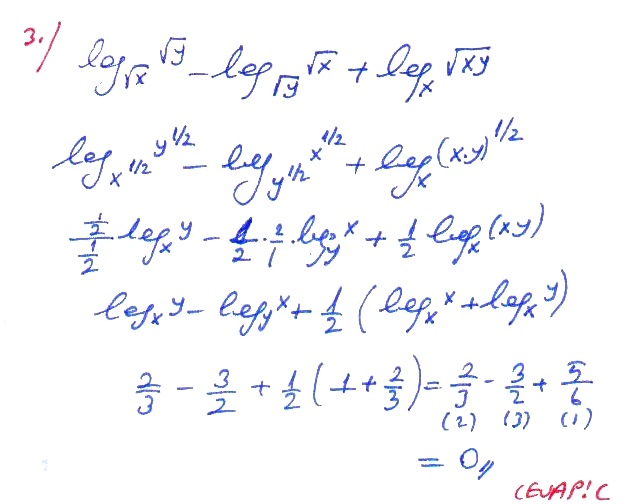 3./ log_√x √y - log_√y √x + log_x √xy
log_x^1/2 y^1/2 - log_y^1/2 x^1/2 + log_x (x.y)^1/2
(1/2)/(1/2) log_x y - 1/2 . 2/1 . log_y x + 1/2 log_x (xy)
log_x y - log_y x + 1/2 ( log_x x + log_x y )
2/3 - 3/2 + 1/2 ( 1 + 2/3 ) = 2/3 - 3/2 + 5/6
(2) (3) (1)
= 0,,
CEVAP: C